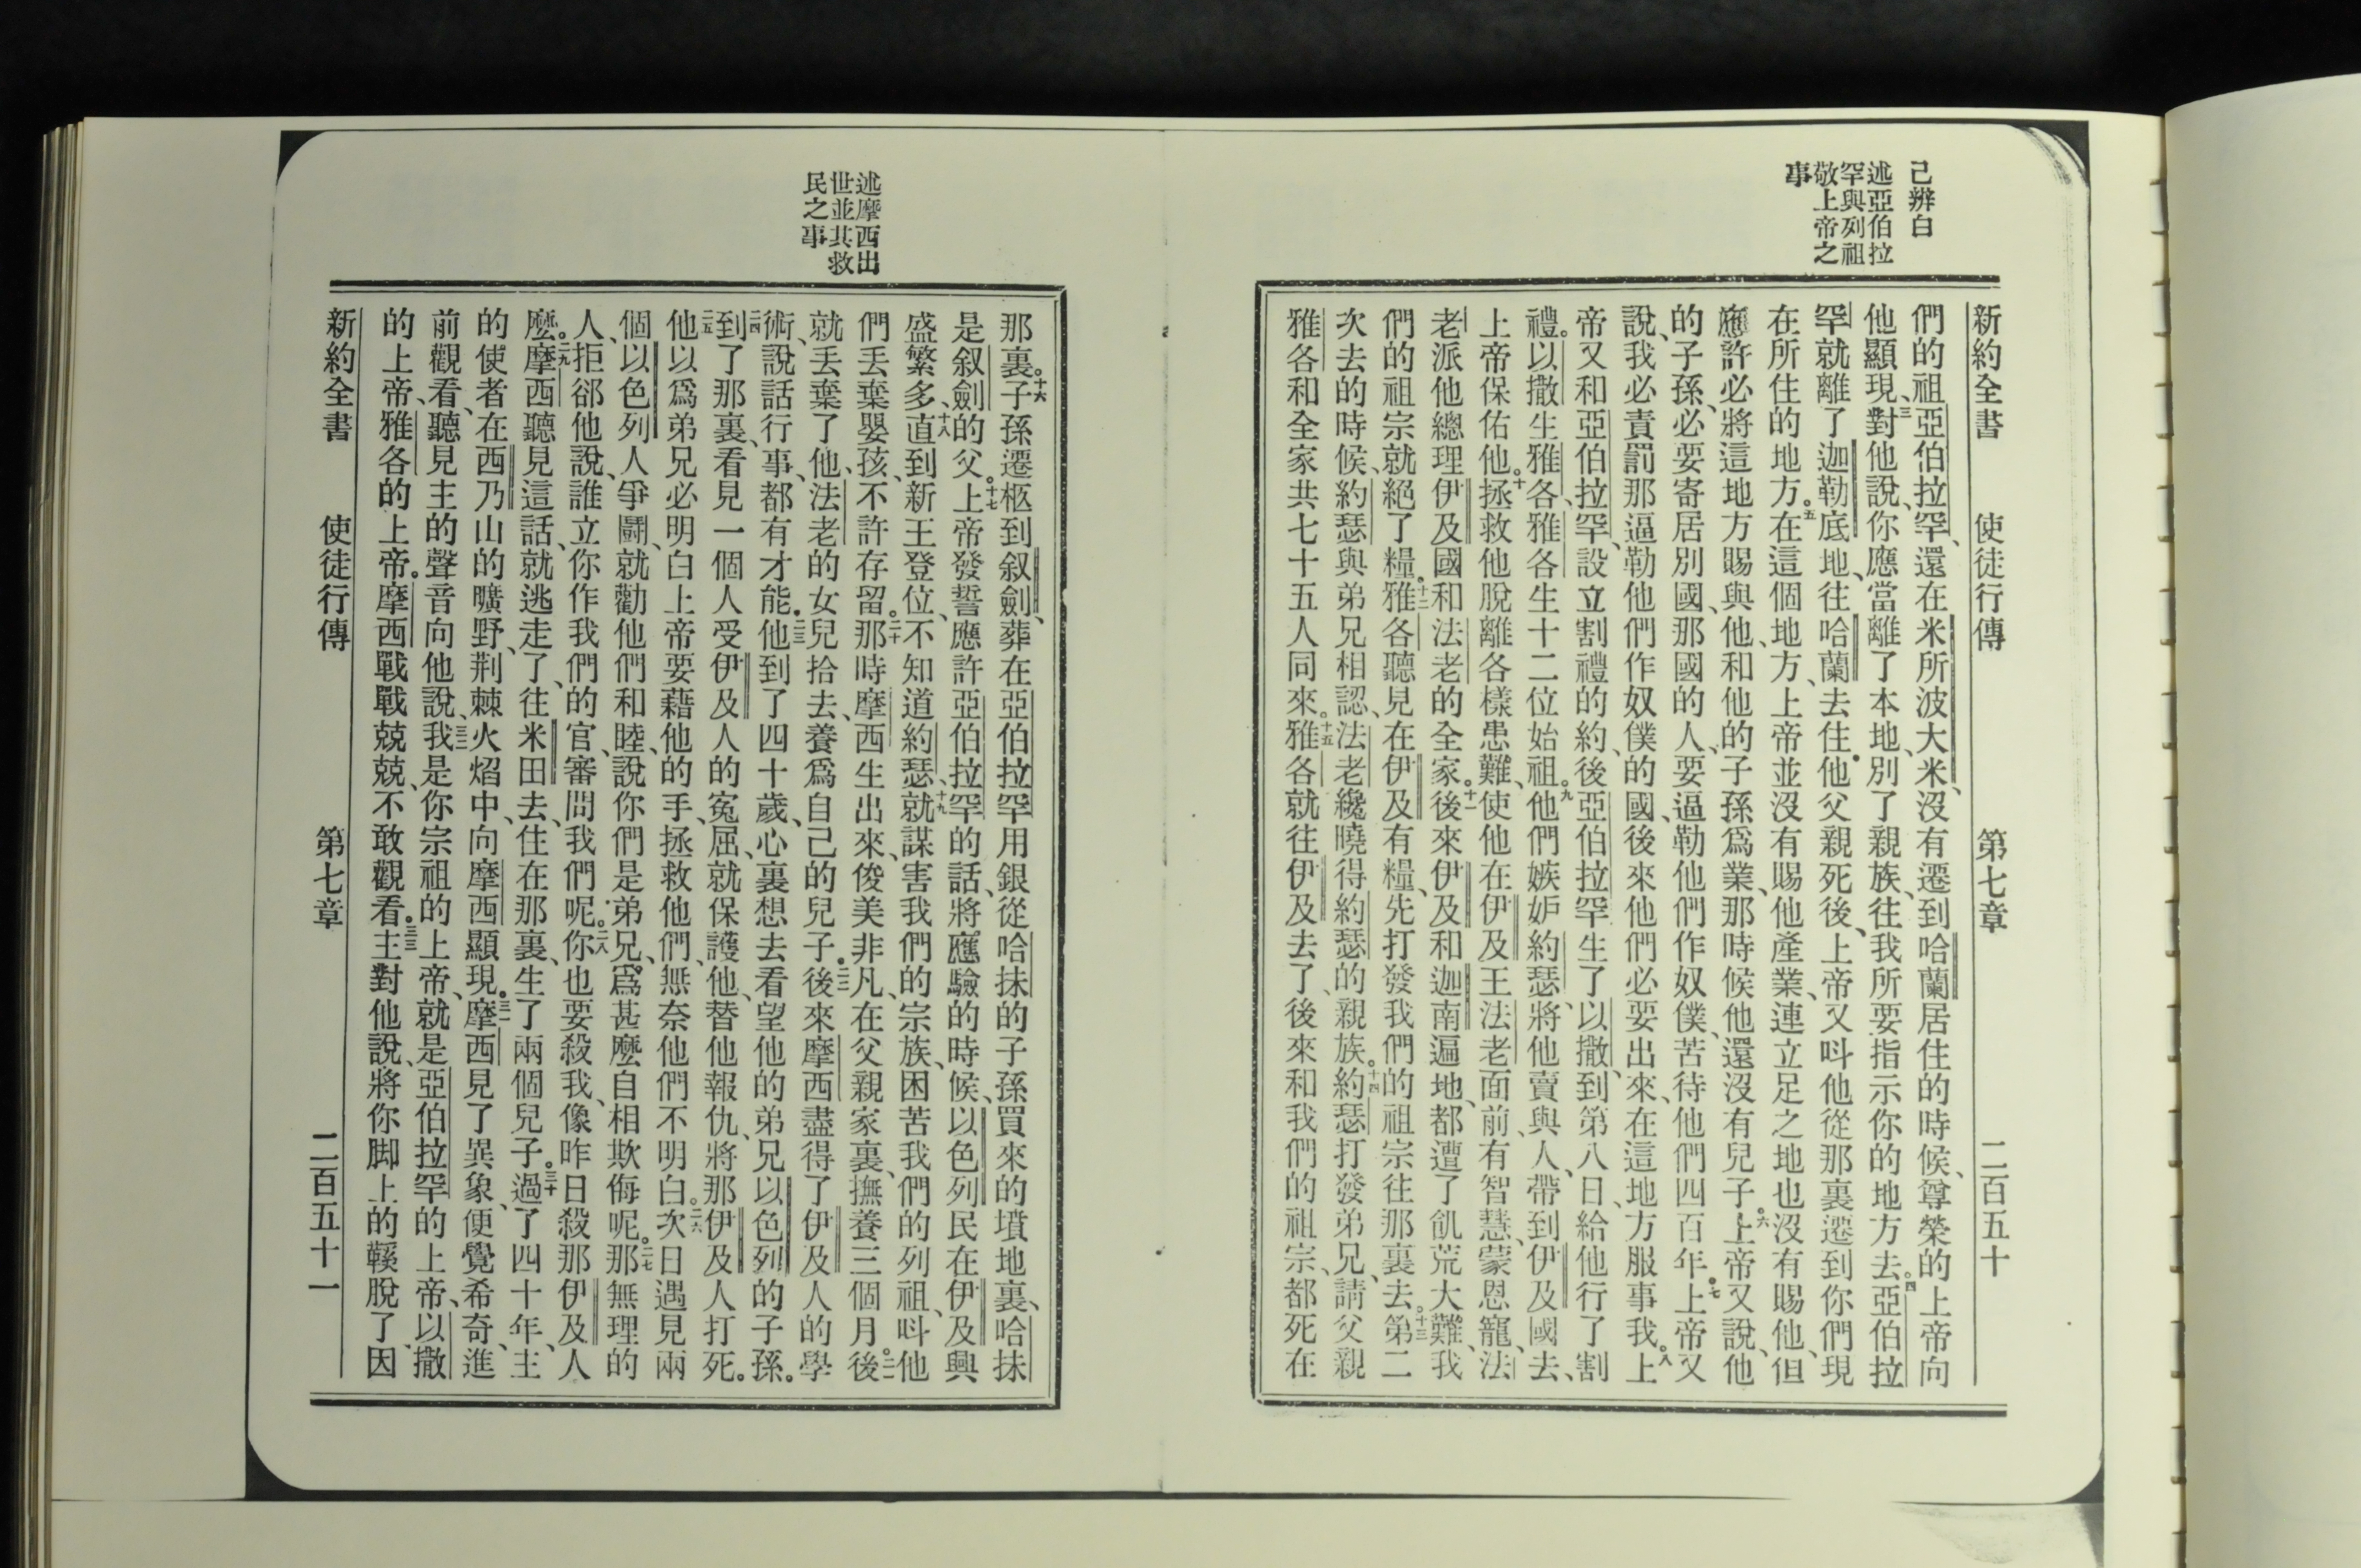 己辨白
述亞伯拉
罕與列祖
敬上帝之
事
新約全書　使徒行傳　第七章　二百五十
們的祖亞伯拉罕、還在米所波大米、沒有遷到哈蘭居住的時候、尊榮的上帝向
他顯現、三對他說、你應當離了本地、別了親族、往我所要指示你的地方去。四亞伯拉
罕就離了迦勒底地、往哈蘭去住。他父親死後、上帝又呌他從那裏遷到你們現
在所住的地方。五在這個地方、上帝並沒有賜他產業、連立足之地也沒有賜他、但
應許必將這地方賜與他、和他的子孫爲業、那時候他還沒有兒子。六上帝又說、他
的子孫、必要寄居別國、那國的人、要逼勒他們作奴僕、苦待他們四百年。七上帝又
說、我必責罰那逼勒他們作奴僕的國、後來他們必要出來、在這地方服事我。八上
帝又和亞伯拉罕、設立割禮的約、後亞伯拉罕生了以撒、到第八日、給他行了割
禮。以撒生雅各、雅各生十二位始祖。九他們嫉妒約瑟、將他賣與人、帶到伊及國去、
上帝保佑他。十拯救他脫離各樣患難、使他在伊及王法老面前、有智慧、蒙恩寵、法
老派他總理伊及國和法老的全家。十一後來伊及和迦南遍地、都遭了飢荒大難、我
們的祖宗就絕了糧。十二雅各聽見在伊及有糧、先打發我們的祖宗往那裏去。十三第二
次去的時候、約瑟與弟兄相認、法老纔曉得約瑟的親族。十四約瑟打發弟兄、請父親
雅各和全家共七十五人同來。十五雅各就往伊及去了、後來和我們的祖宗、都死在
述摩西出
世並其救
民之事
那裏。十六子孫遷柩到叙劍、葬在亞伯拉罕用銀從哈抹的子孫買來的墳地裏、哈抹
是叙劍的父。十七上帝發誓應許亞伯拉罕的話、將應驗的時候、以色列民在伊及興
盛繁多、十八直到新王登位、不知道約瑟、十九就謀害我們的宗族、困苦我們的列祖、呌他
們丟棄嬰孩、不許存留。二十那時摩西生出來、俊美非凡、在父親家裏、撫養三個月。二一後
就丟棄了他、法老的女兒拾去、養爲自己的兒子。二二後來摩西盡得了伊及人的學
術、說話行事、都有才能。二三他到了四十歲、心裏想去看望他的弟兄以色列的子孫。
二四到了那裏、看見一個人受伊及人的寃屈、就保護他、替他報仇、將那伊及人打死。
二五他以爲弟兄必明白上帝要藉他的手、拯救他們、無奈他們不明白。二六次日遇見兩
個以色列人爭鬬、就勸他們和睦、說你們是弟兄、爲甚麼自相欺侮呢。二七那無理的
人、拒郤他說、誰立你作我們的官、審問我們呢。二八你也要殺我、像昨日殺那伊及人
麼。二九摩西聽見這話、就逃走了、往米田去、住在那裏、生了兩個兒子。三十過了四十年、主
的使者、在西乃山的曠野、荆棘火焰中、向摩西顯現。三一摩西見了異象、便覺希奇、進
前觀看、聽見主的聲音向他說、三二我是你宗祖的上帝、就是亞伯拉罕的上帝、以撒
的上帝、雅各的上帝。摩西戰戰兢兢、不敢觀看。三三主對他說、將你脚上的鞵脫了、因
新約全書　使徒行傳　第七章　二百五十一